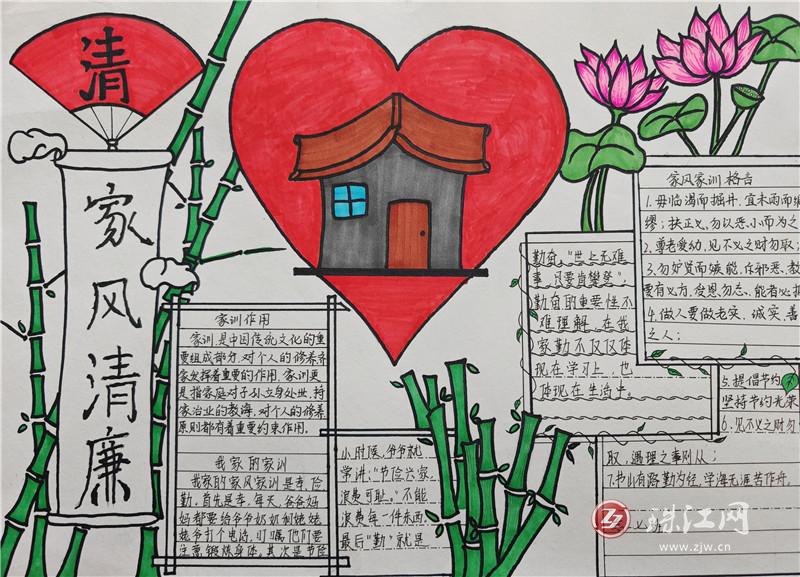 清
家风清廉
家训作用
家训是中国传统文化的重
要组成部分,对个人的修养齐
家发挥着重要的作用,家训更
是指家庭对子孙立身处世,持
家治业的教诲,对个人的修养
原则都有着重要约束作用。
我家的家训
我家的家风家训是孝俭
勤,首先是孝,每天,爸爸妈
妈都要给爷爷奶奶和姥姥
姥爷打个电话,叮嘱他们要
注意锻炼身体。其次是节俭
小时候,爷爷就
常讲:“节俭兴家,
浪费可耻。”不能
浪费每一件东西,
最后“勤”就是
勤奋,“世上无难
事,只要肯攀登”;
勤奋的重要性不
难理解,在我
家勤不仅仅体
现在学习上,也
体现在生活中。
家风家训格言
1.毋临渴而掘井,宜未雨而绸
缪;扶正义,勿以恶小而为之
2.尊老爱幼,见不义之财勿取;
3.勿妒贤而嫉能,
要有义方,爱恩勿忘、能者必
4.做人要做老实、诚实、善
之人;
5.提倡节约
坚持节约光荣
6.见不义之财勿
取,遇理之事则从;
7.书山有路勤为径,学海无涯苦作舟。
珠江网
www.zjw.cn